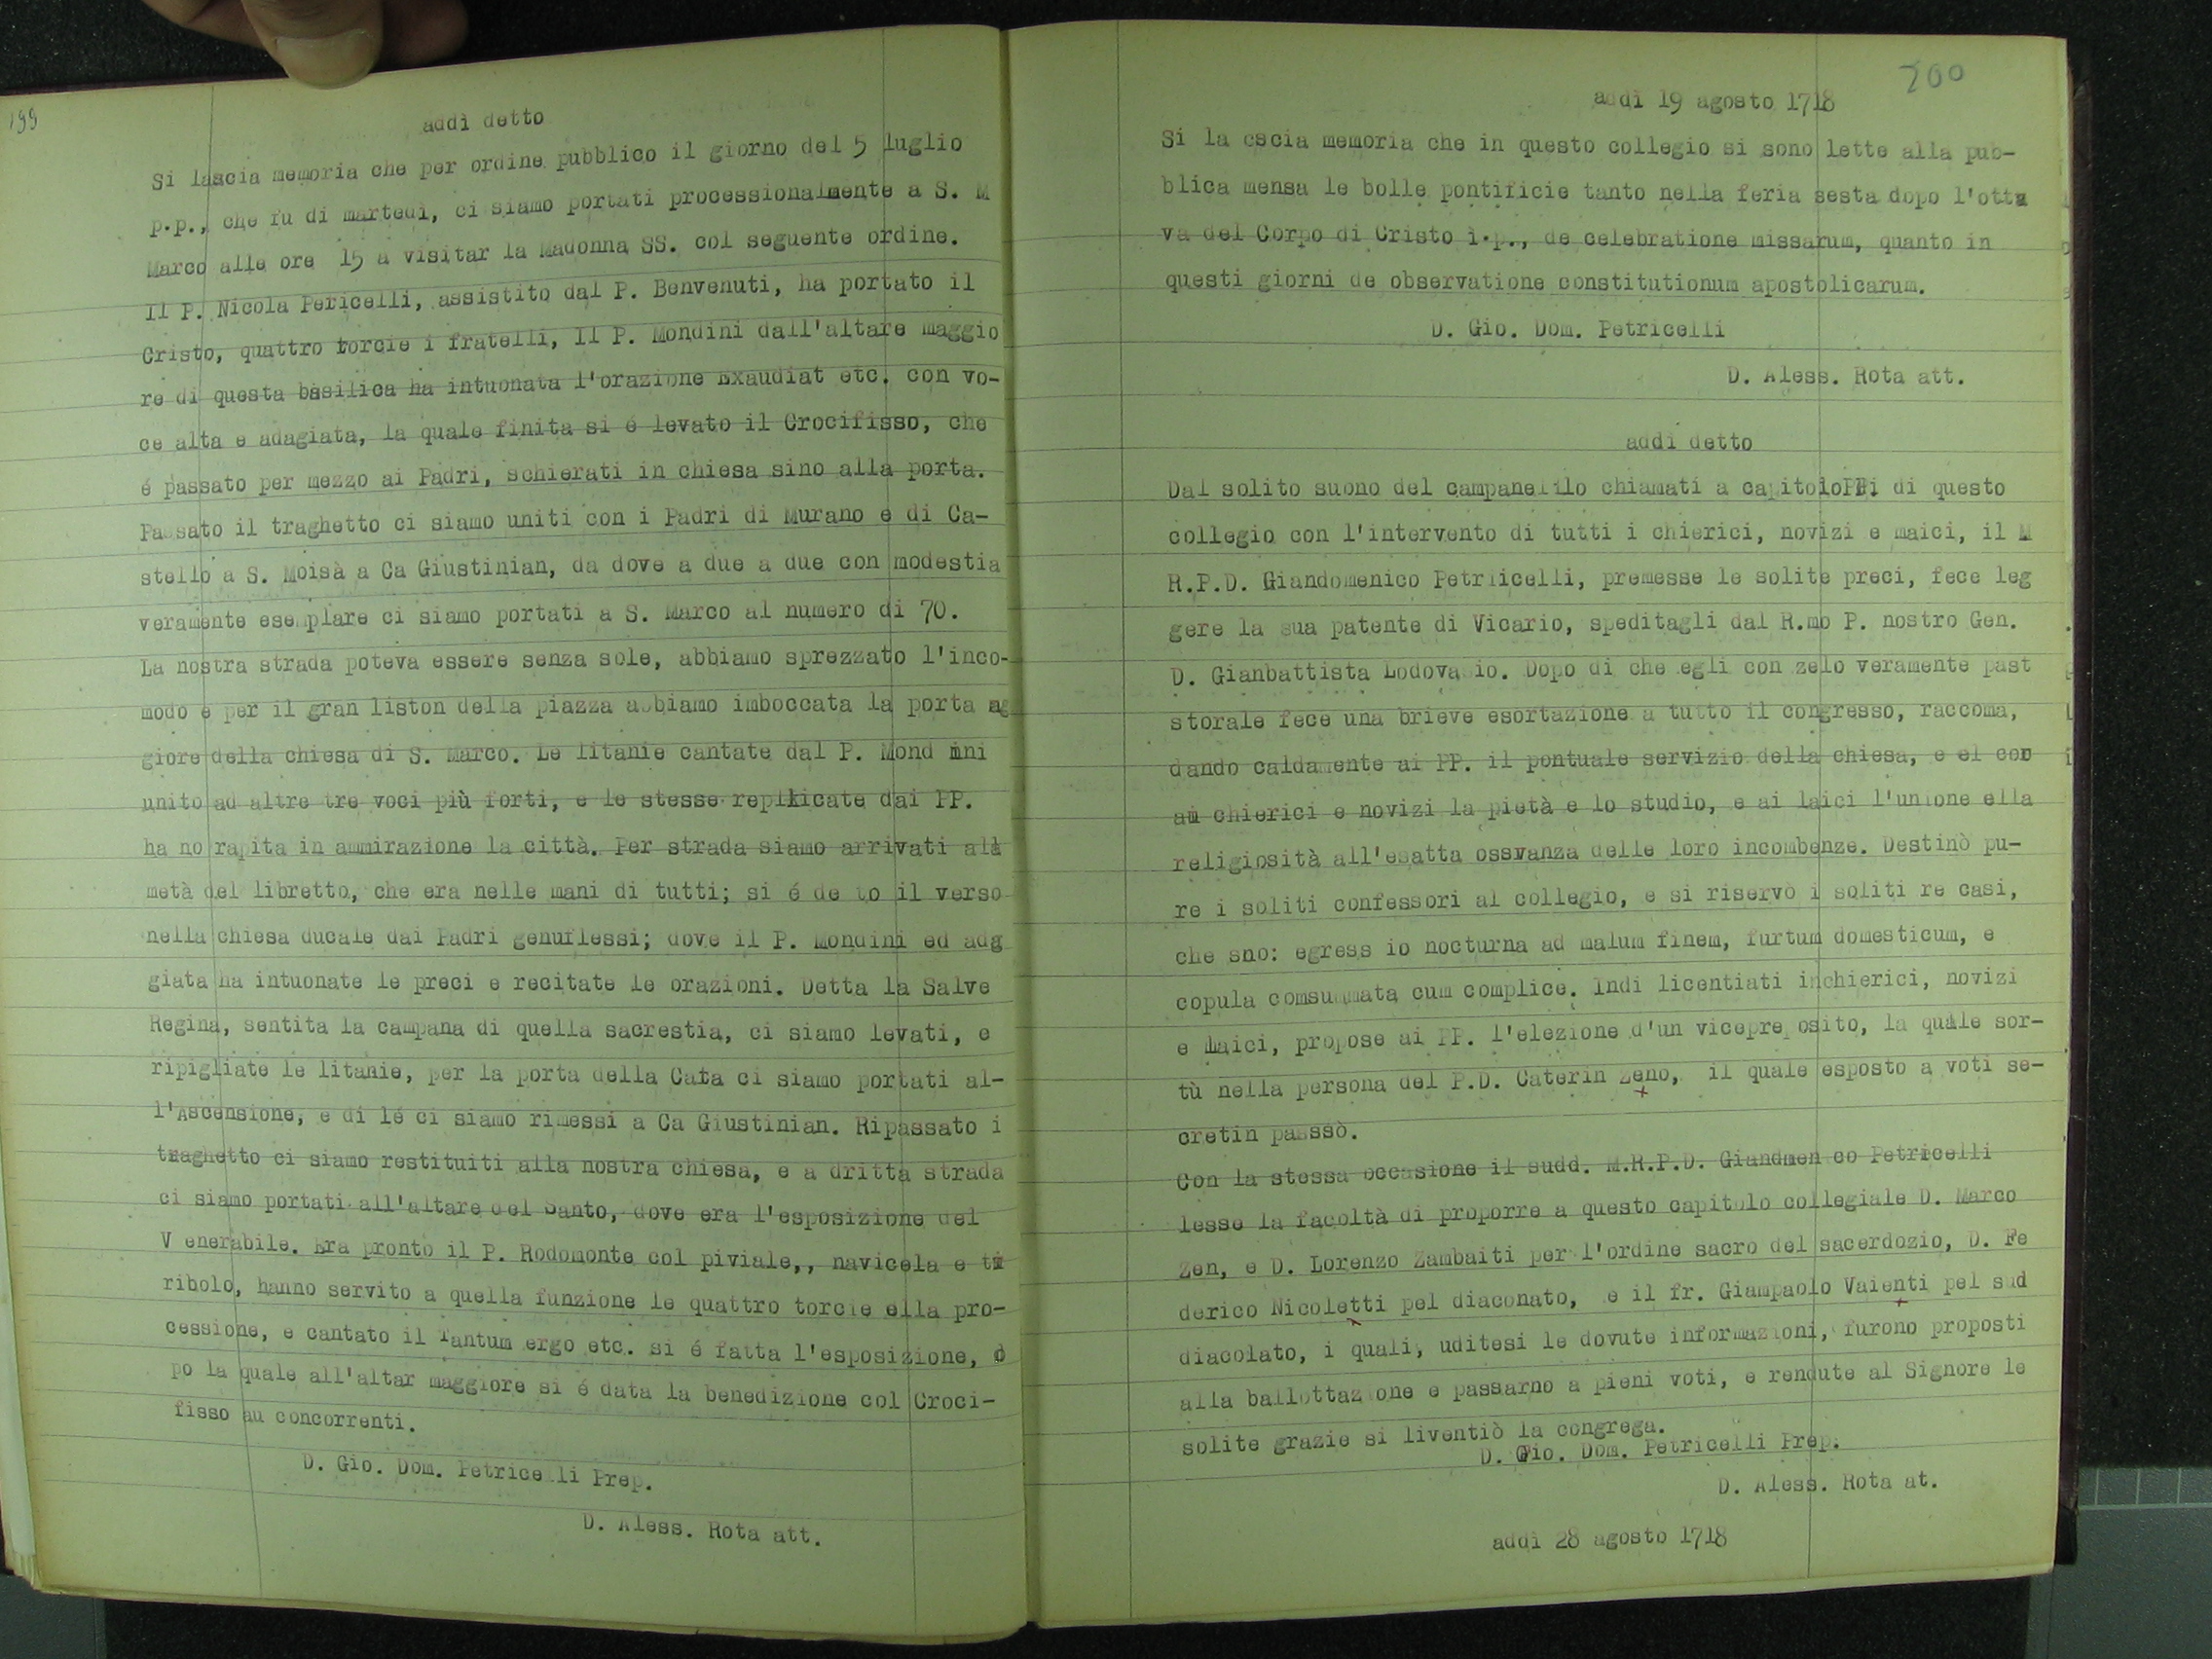 199
addì detto
Si lascia memoria che per ordine pubblico il giorno del 5 luglio
p.p., che fu di martedì, ci siamo portati processionalmente a S. M
Marco alle ore 15 a visitar la Madonna SS. col seguente ordine.
Il P. Nicola Pericelli, assistito dal P. Benvenuti, ha portato il
Cristo, quattro torcie i fratelli, Il P. Mondini dall'altare maggio
re di questa basilica ha intuonata l'orazione Exaudiat etc. con vo-
ce alta e adagiata, la quale finita si é levato il Crocifisso, che
é passato per mezzo ai Padri, schierati in chiesa sino alla porta.
Passato il traghetto ci siamo uniti con i Padri di Murano e di Ca-
stello a S. Moisà a Ca Giustinian, da dove a due a due con modestia
veramente esemplare ci siamo portati a S. Marco al numero di 70.
La nostra strada poteva essere senza sole, abbiamo sprezzato l'inco-
modo e per il gran liston della piazza abbiamo imboccata la porta ag
giore della chiesa di S. Marco. Le litanie cantate dal P. Mond ini
unito ad altre tre voci più forti, e le stesse replicate dai PP.
ha no rapita in ammirazione la città. Per strada siamo arrivati alà
metà del libretto, che era nelle mani di tutti; si é de to il verso
nella chiesa ducale dai Padri genuflessi; dove il P. Mondini ed adg
giata ha intuonate le preci e recitate le orazioni. Detta la Salve
Regina, sentita la campana di quella sacrestia, ci siamo levati, e
ripigliate le litanie, per la porta della Cata ci siamo portati al-
l'Ascensione, e di lé ci siamo rimessi a Ca Giustinian. Ripassato i
traghetto ci siamo restituiti alla nostra chiesa, e a dritta strada
ci siamo portati all'altare del Santo, dove era l'esposizione del
V enerabile. Era pronto il P. Rodomonte col piviale,, navicela e ti
ribolo, hanno servito a quella funzione le quattro torcie ella pro-
cessione, e cantato il Tantum ergo etc. si é fatta l'esposizione, d
po la quale all'altar maggiore si é data la benedizione col Croci-
fisso au concorrenti.
D. Gio. Dom. Petricelli Prep.
D. Aless. Rota att.
200
addì 19 agosto 1718
Si la cscia memoria che in questo collegio si sono lette alla pub-
blica mensa le bolle pontificie tanto nella feria sesta dopo l'otta
va del Corpo di Cristo i.p., de celebratione missarum, quanto in
questi giorni de observatione constitutionum apostolicarum.
D. Gio. Dom. Petricelli
D. Aless. Rota att.
addì detto
Dal solito suono del campanelllo chiamati a capitolo di questo
collegio con l'intervento di tutti i chierici, novizi e maici, il M
R.P.D. Giandomenico Petrlicelli, premesse le solite preci, fece leg
gere la sua patente di Vicario, speditagli dal R.mo P. nostro Gen.
D. Gianbattista Lodova io. Dopo di che egli con zelo veramente past
storale fece una brieve esortazione a tutto il congresso, raccoma,
dando caldamente ai PP. il pontuale servizio della chiesa, e el cor
ai chierici e novizi la pietà e lo studio, e ai laici l'unione ella
religiosità all'esatta ossvanza delle loro incombenze. Destinò pu-
re i soliti confessori al collegio, e si riservò i soliti re casi,
che sno: egress io nocturna ad malum finem, furtum domesticum, e
copula comsummata cum complice. Indi licentiati inchierici, novizi
e laici, propose ai PP. l'elezione d'un vicepre osito, la quale sor-
tù nella persona del P.D. Caterin Zeno, il quale esposto a voti se-
cretin passsò.
Con la stessa occasione il sudd. M.R.P.D. Giandmen co Petricelli
lesse la facoltà di proporre a questo capitolo collegiale D. Marco
Zen, e D. Lorenzo Zambaiti per l'ordine sacro del sacerdozio, D. Fe
derico Nicoletti pel diaconato, e il fr. Giampaolo Vaienti pel sud
diacolato, i quali, uditesi le dovute informazioni, furono proposti
alla ballottaz one e passarno a pieni voti, e rendute al Signore le
solite grazie si liventiò la congrega.
D. Gio. Dom. Petricelli Prep.
D. Aless. Rota at.
addì 28 agosto 1718